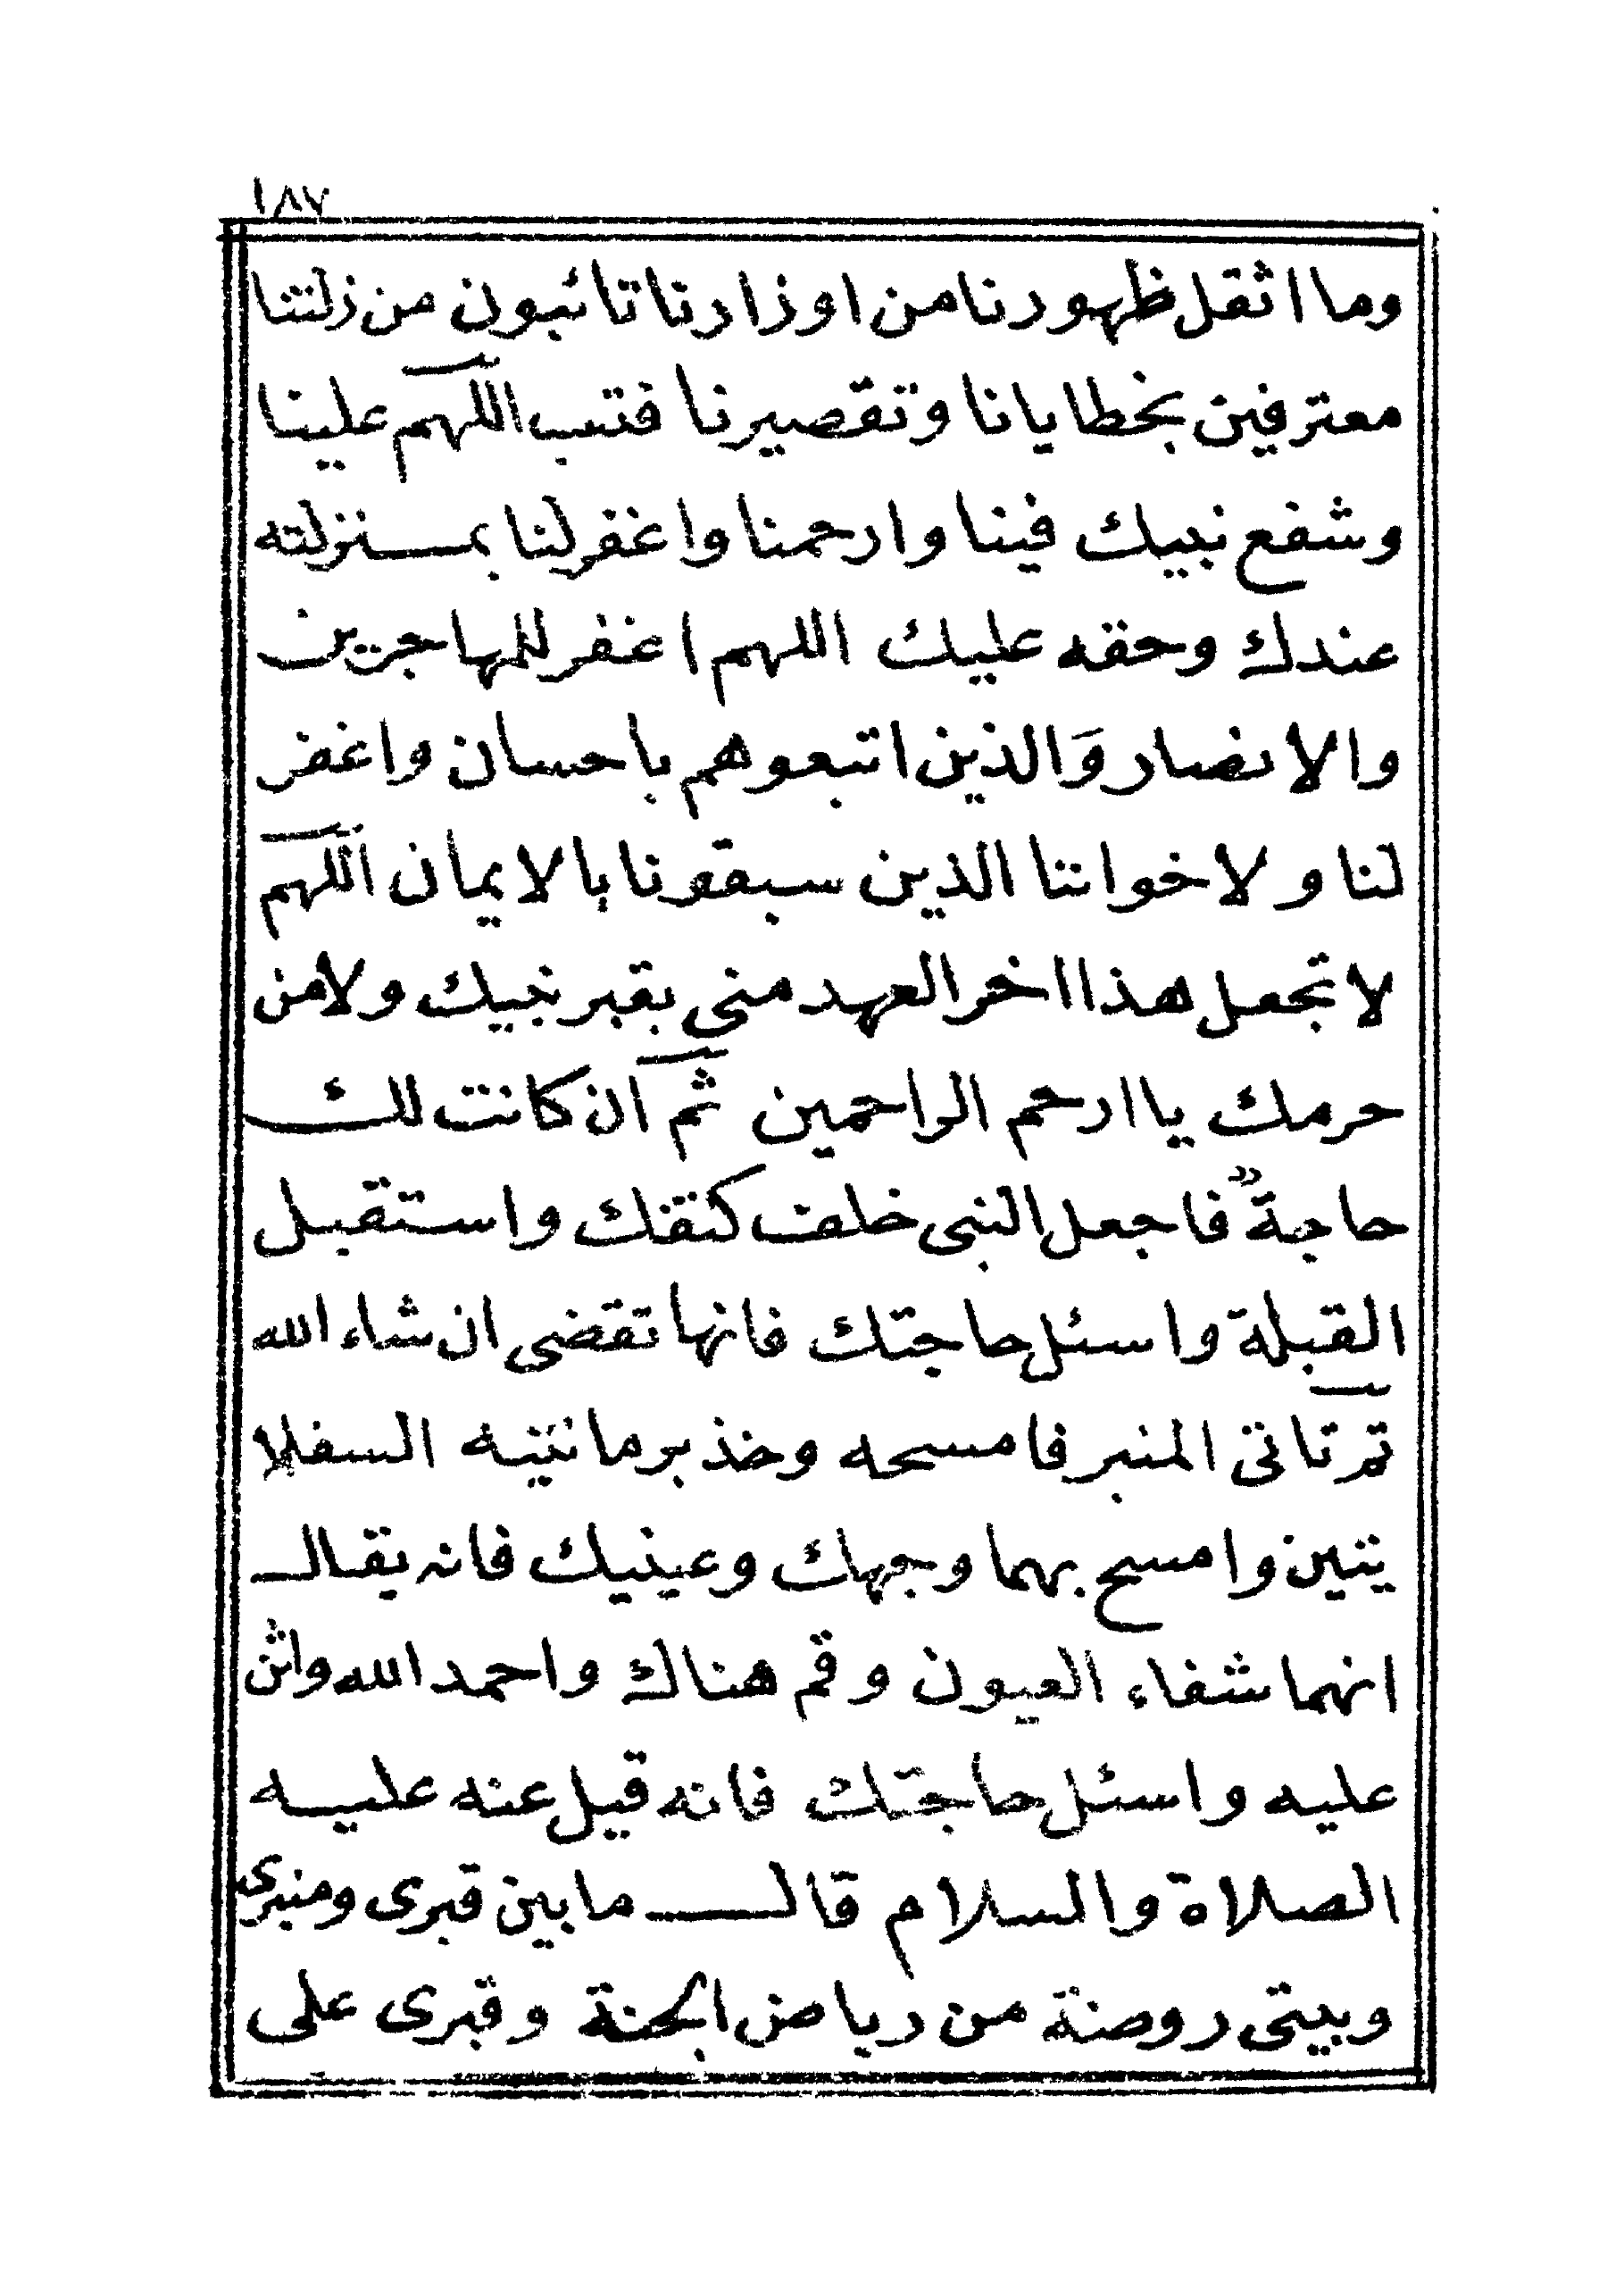 ١٨٧
وما اثقل ظهورنا من اوزارنا تائبون من زلتنا
معترفين بخطايانا وتقصيرنا فتب اللهم علينا
وشفع نبيك فينا وارحمنا واغفر لنا بمنزلته
عندك وحقه عليك اللهم اغفر للمهاجرين
والانصار وَالذين اتبعوهم باحسان واغفر
لنا ولاخواننا الذين سبقونا بالايمان اللهم
لا تجعل هذا اخر العهد منى بقبر نبيك ولا من
حرمك يا ارحم الراحمين ثم ان كانت لك
حاجة فاجعل النبى خلف كتفك واستقبل
القبلة واسئل حاجتك فانها تقضى ان شاء الله
ثم تاتى المنبر فامسحه وخذ برمانتيه السفلا
يتين وامسح بهما وجهك وعينيك فانه يقال
انهما شفاء العيون وقم هناك واحمد الله واثن
عليه واسئل حاجتك فانه قيل عنه عليه
الصلاة والسلام قال ما بين قبرى ومنبرى
وبيتى روضة من رياض الجنة وقبرى على